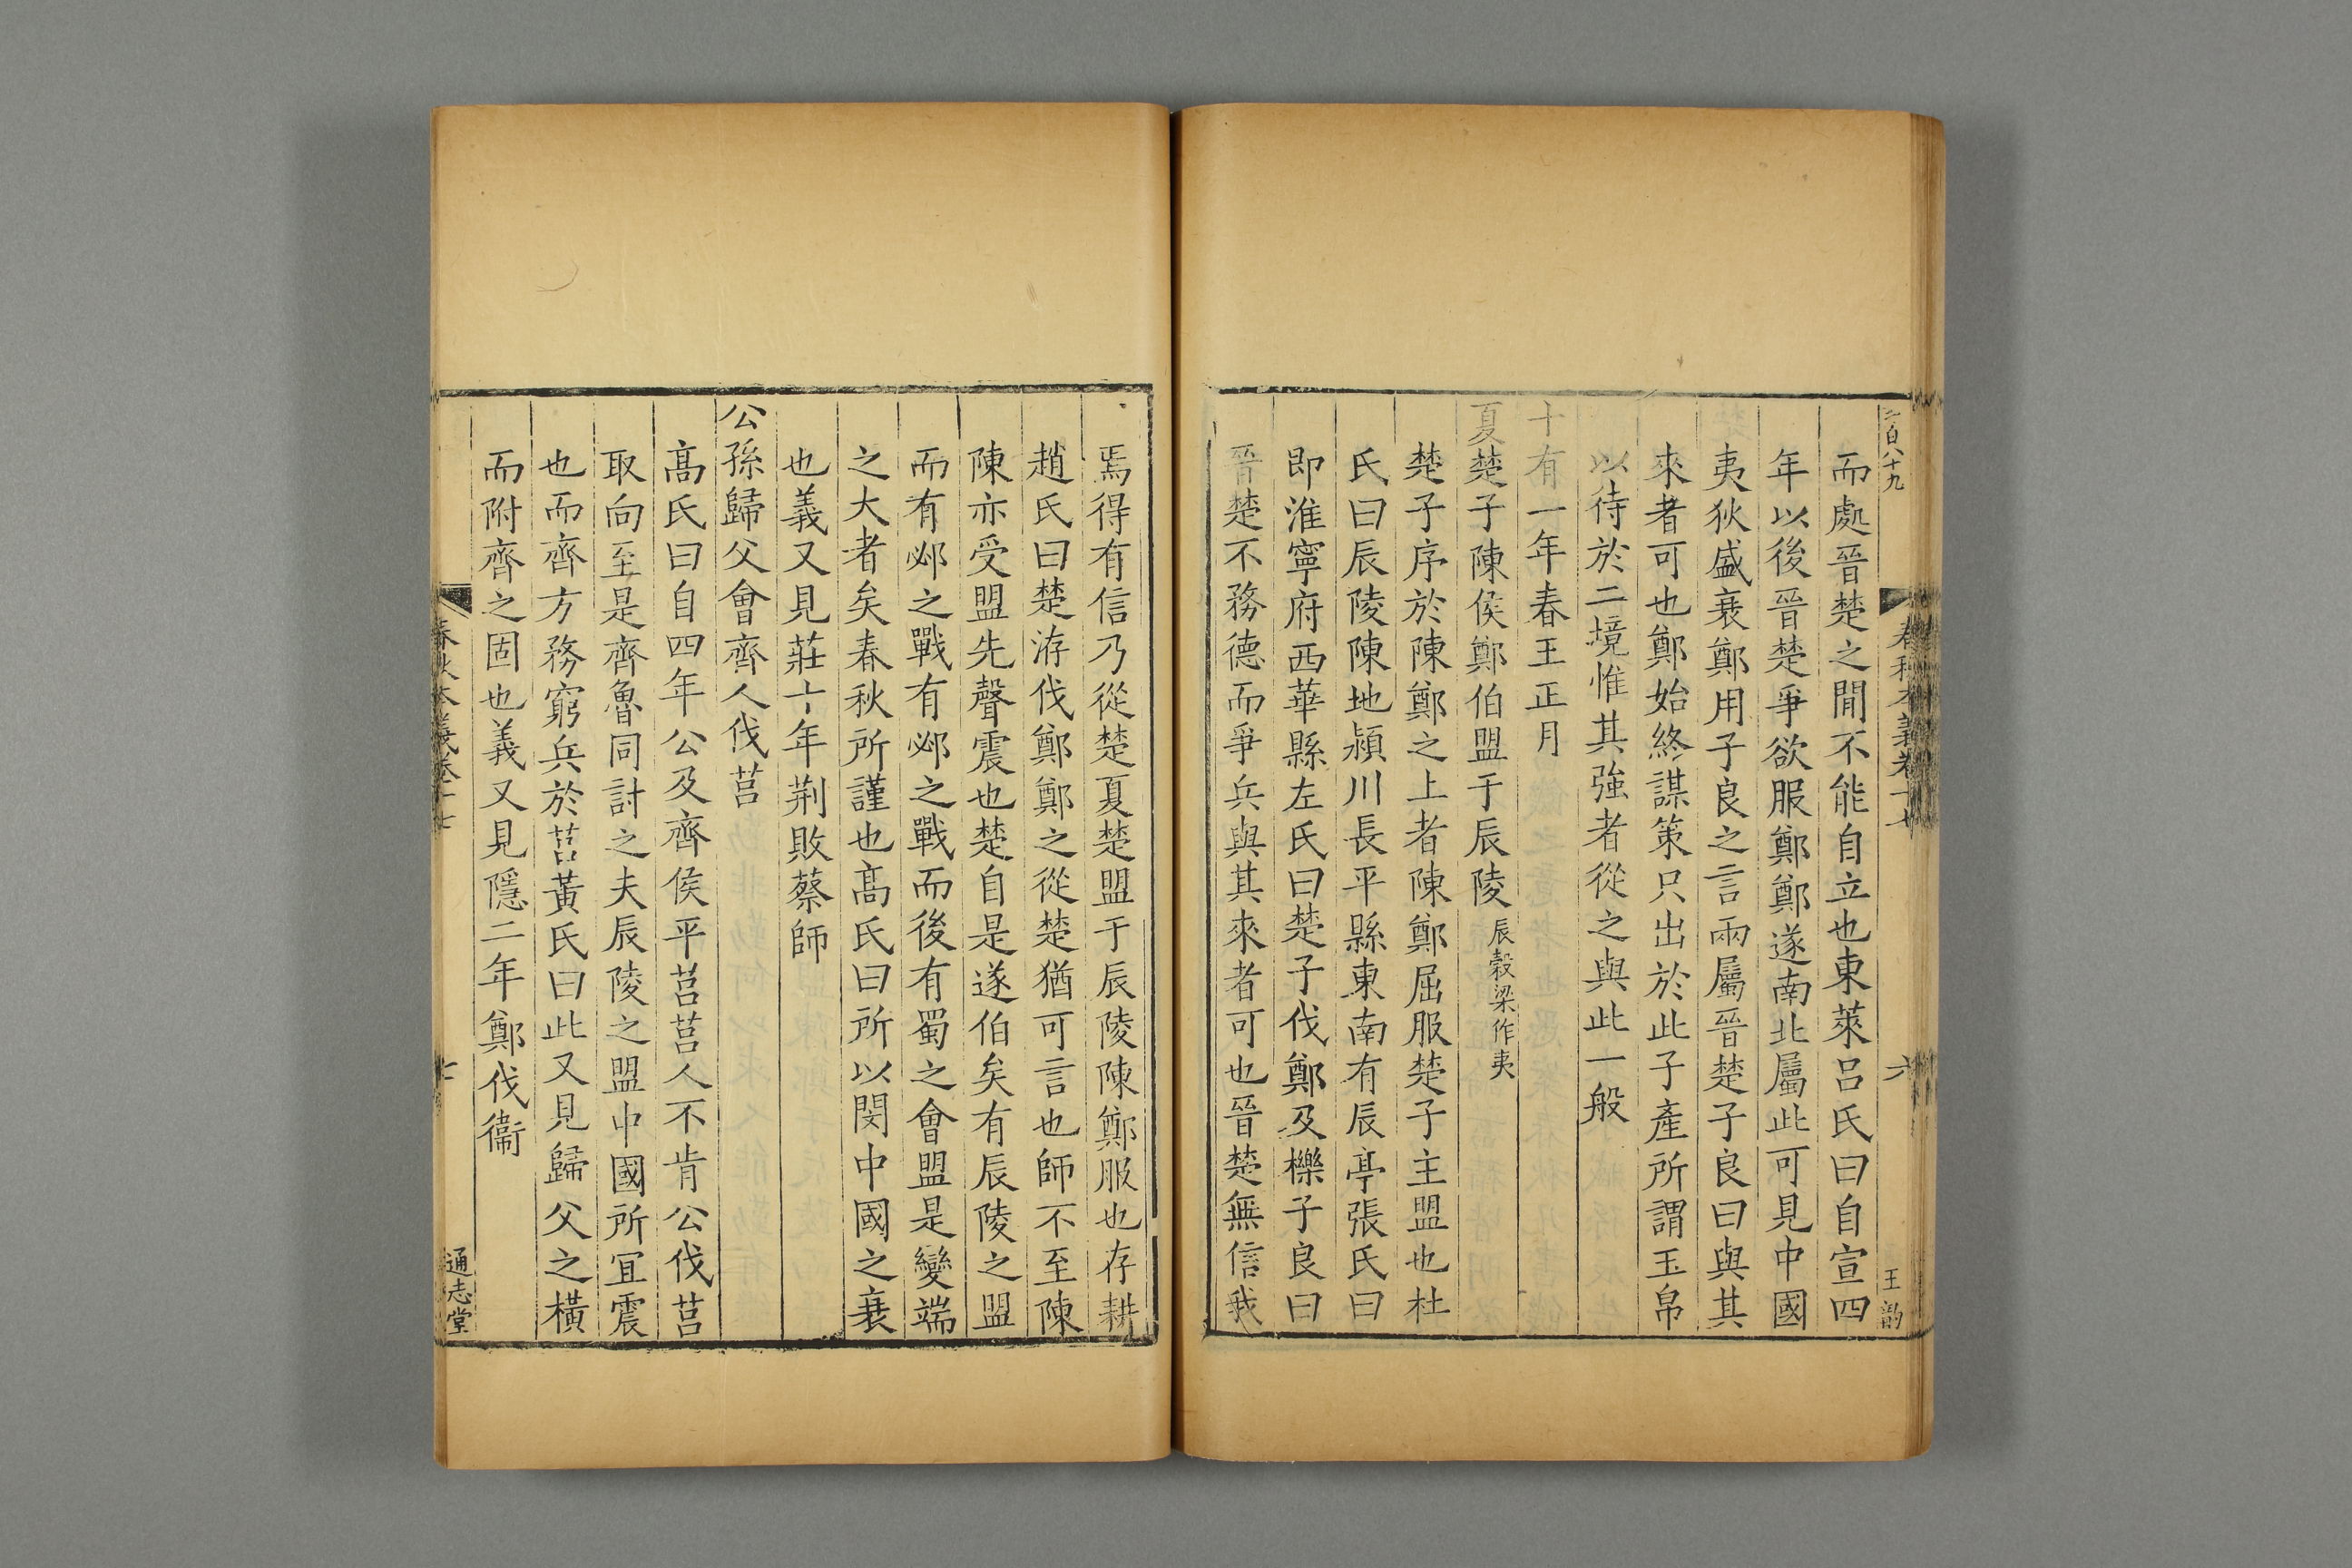 二百八十九
春秋本義卷十七
六
王
而處晉楚之閒不能自立也東萊呂氏曰自宣四
年以後晉楚爭欲服鄭鄭遂南北屬此可見中國
夷狄盛衰鄭用子良之言兩屬晉楚子良曰與其
來者可也鄭始終謀策只出於此子產所謂玉帛
以待於二境惟其強者從之與此一般
十有一年春王正月
夏楚子陳侯鄭伯盟于辰陵辰穀梁作夷
楚子序於陳鄭之上者陳鄭屈服楚子主盟也杜
氏曰辰陵陳地潁川長平縣東南有辰亭張氏曰
即淮寧府西華縣左氏曰楚子伐鄭及櫟子良曰
晉楚不務德而爭兵與其來者可也晉楚無信我
焉得有信乃從楚夏楚盟于辰陵陳鄭服也存耕
趙氏曰楚洊伐鄭鄭之從楚猶可言也師不至陳
陳亦受盟先聲震也楚自是遂伯矣有辰陵之盟
而有邲之戰有邲之戰而後有蜀之會盟是變端
之大者矣春秋所謹也髙氏曰所以閔中國之衰
也義又見莊十年荆敗蔡師
公孫歸父會齊人伐莒
髙氏曰自四年公及齊侯平莒莒人不肯公伐莒
取向至是齊魯同討之夫辰陵之盟中國所宜震
也而齊方務窮兵於莒黃氏曰此又見歸父之橫
而附齊之固也義又見隱二年鄭伐衞
春秋本義卷十七
七
通志堂